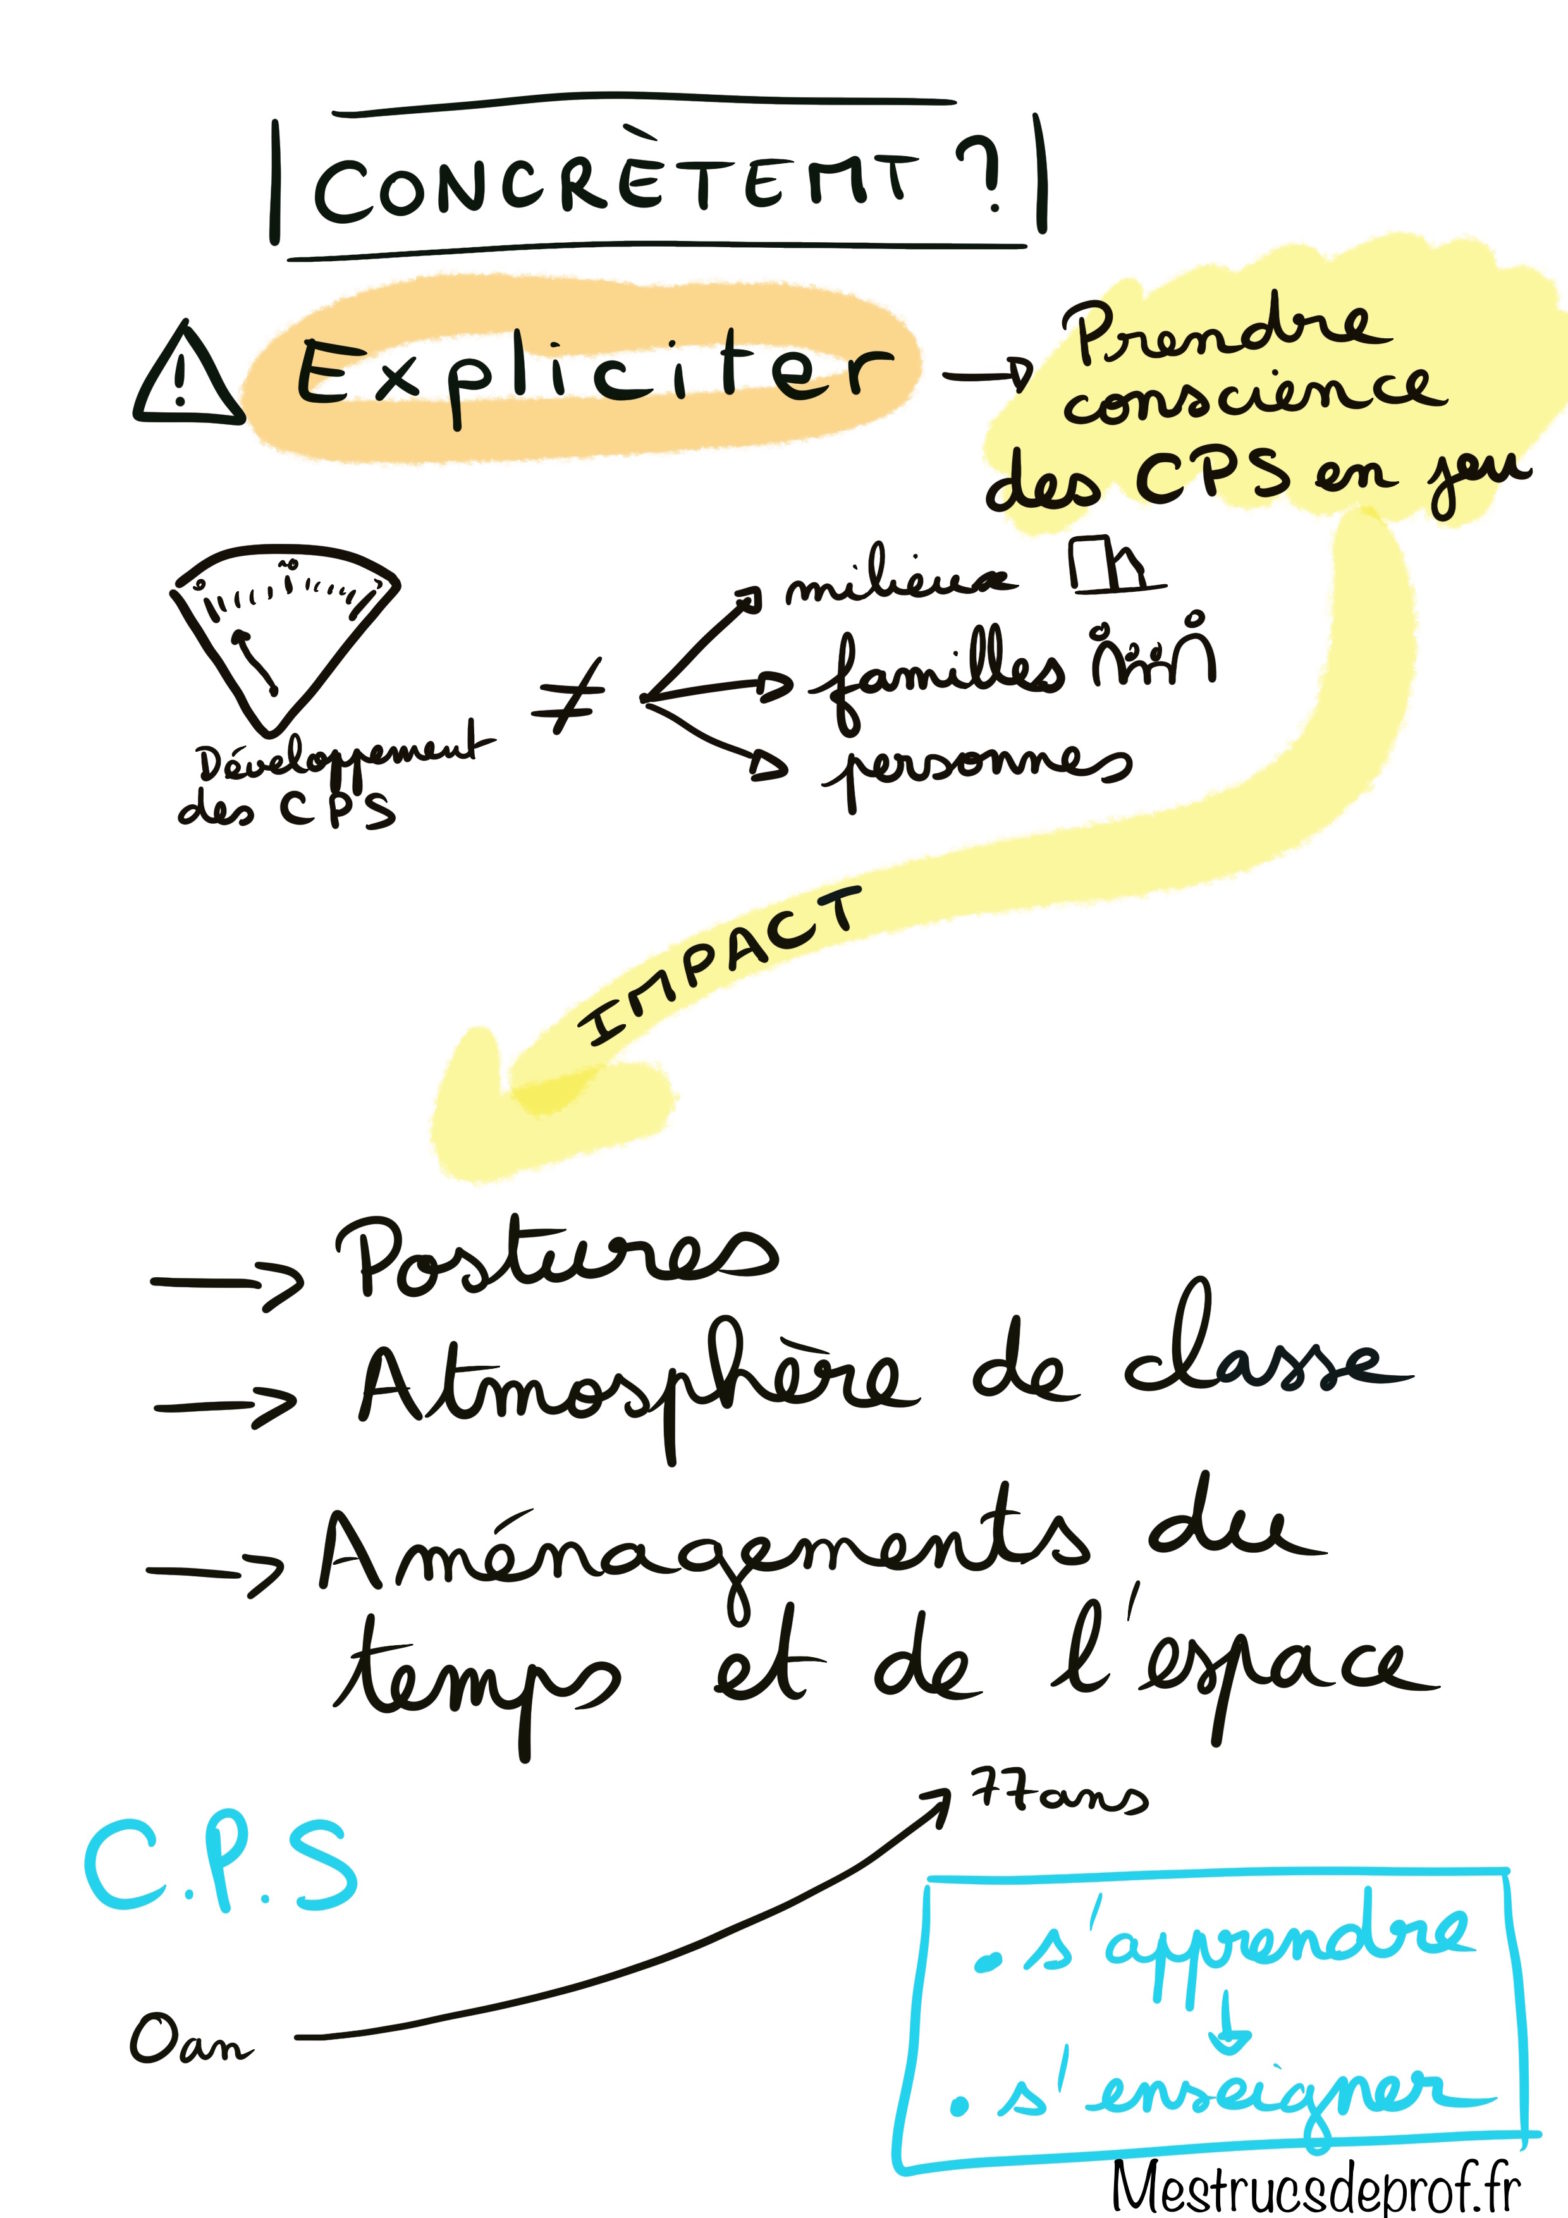 CONCRÈTEMT ?
! Expliciter → Prendre
conscience
des CPS en jeu
≠
milieux
familles
personnes
Développement
des CPS
IMPACT
→ Postures
→ Atmosphère de classe
→ Aménagements du
temps et de l'espace
C.P.S
77ans
0an
. s'apprendre
. s'enseigner
Mestrucsdeprof.fr